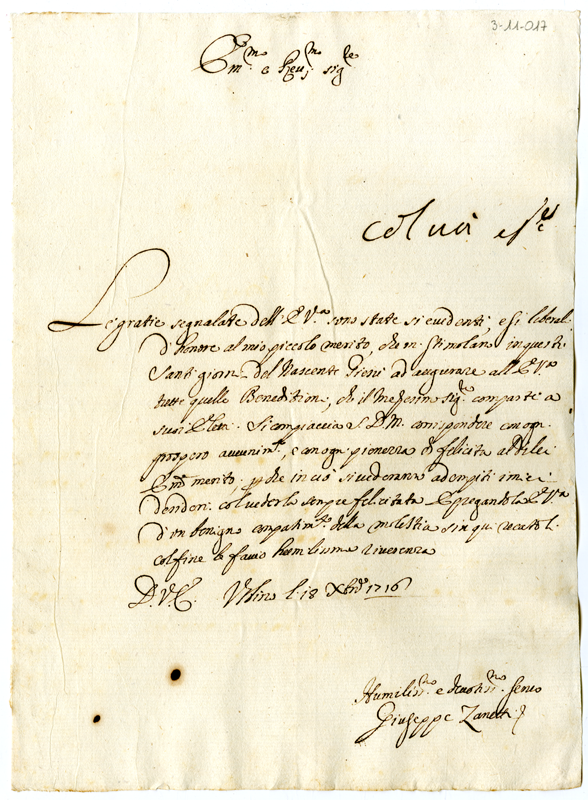 3-11-017
Em.mo e Reu.mo sig.re
Le gratie segnalate dell' E V.ra sono state si euidenti, e si liberali
d'honore al mio piccolo merito, che mi stimolano in questi
Santi giorni del Nascente Giesù ad augurare all' E V.ra
tutte quelle Benedittioni, che il Medesimo sig.re comparte a
suoi Eletti. Si compiaccia S. D. M. corrispondere con ogni
prospero auuenim.to, e con ogni pienezza di felicita al di lei
Em.mo merito; perche in ciò si uederanno adempiti i miei
desideri col uederla sempre felicitata. E pregando la E V.ra
d'un benigno compatim.to della molestia sin qui recatoli
col fine le faccio humilissima riuerenza
D. V. E. Urbino li 18 Xbre 1716
Humiliss.mo e deuotiss.mo seruo
Giuseppe Zanetti